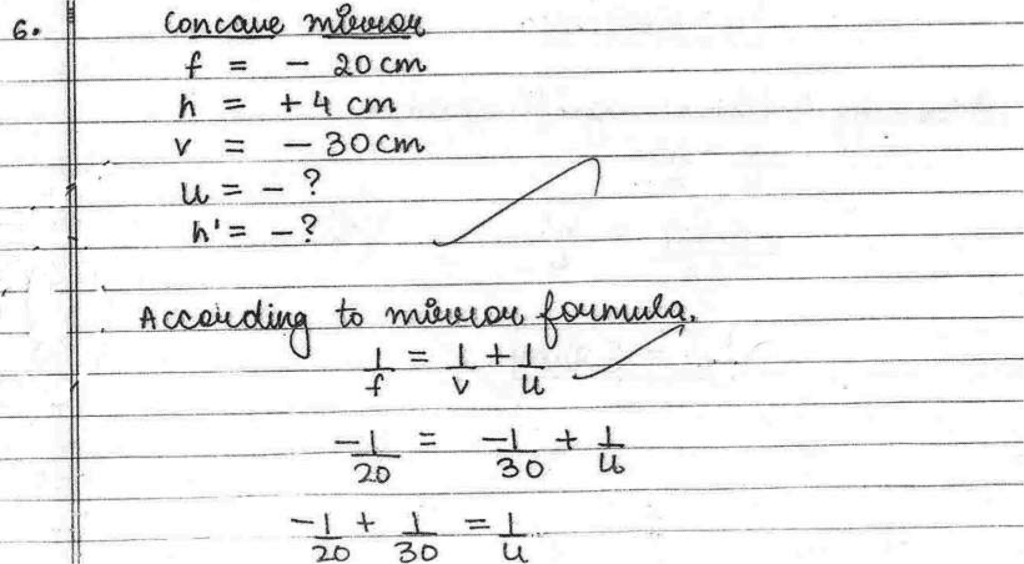 6. Concave mirror
f = - 20 cm
h = + 4 cm
v = - 30 cm
u = - ?
h' = - ?
According to mirror formula,
1/f = 1/v + 1/u
-1/20 = -1/30 + 1/u
-1/20 + 1/30 = 1/u